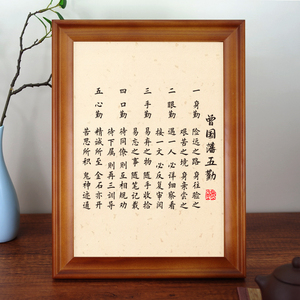 曾国藩五勤
一身勤 险远之路 身往验之
艰苦之境 身亲尝之
二眼勤 遇一人 必详细察看
接一文 必反复审阅
三手勤 易弃之物 随手收拾
易忘之事 随笔记载
四口勤 待同僚 则互相规劝
待下属 则再三训导
五心勤 精诚所至 金石亦开
苦思所积 鬼神迹通